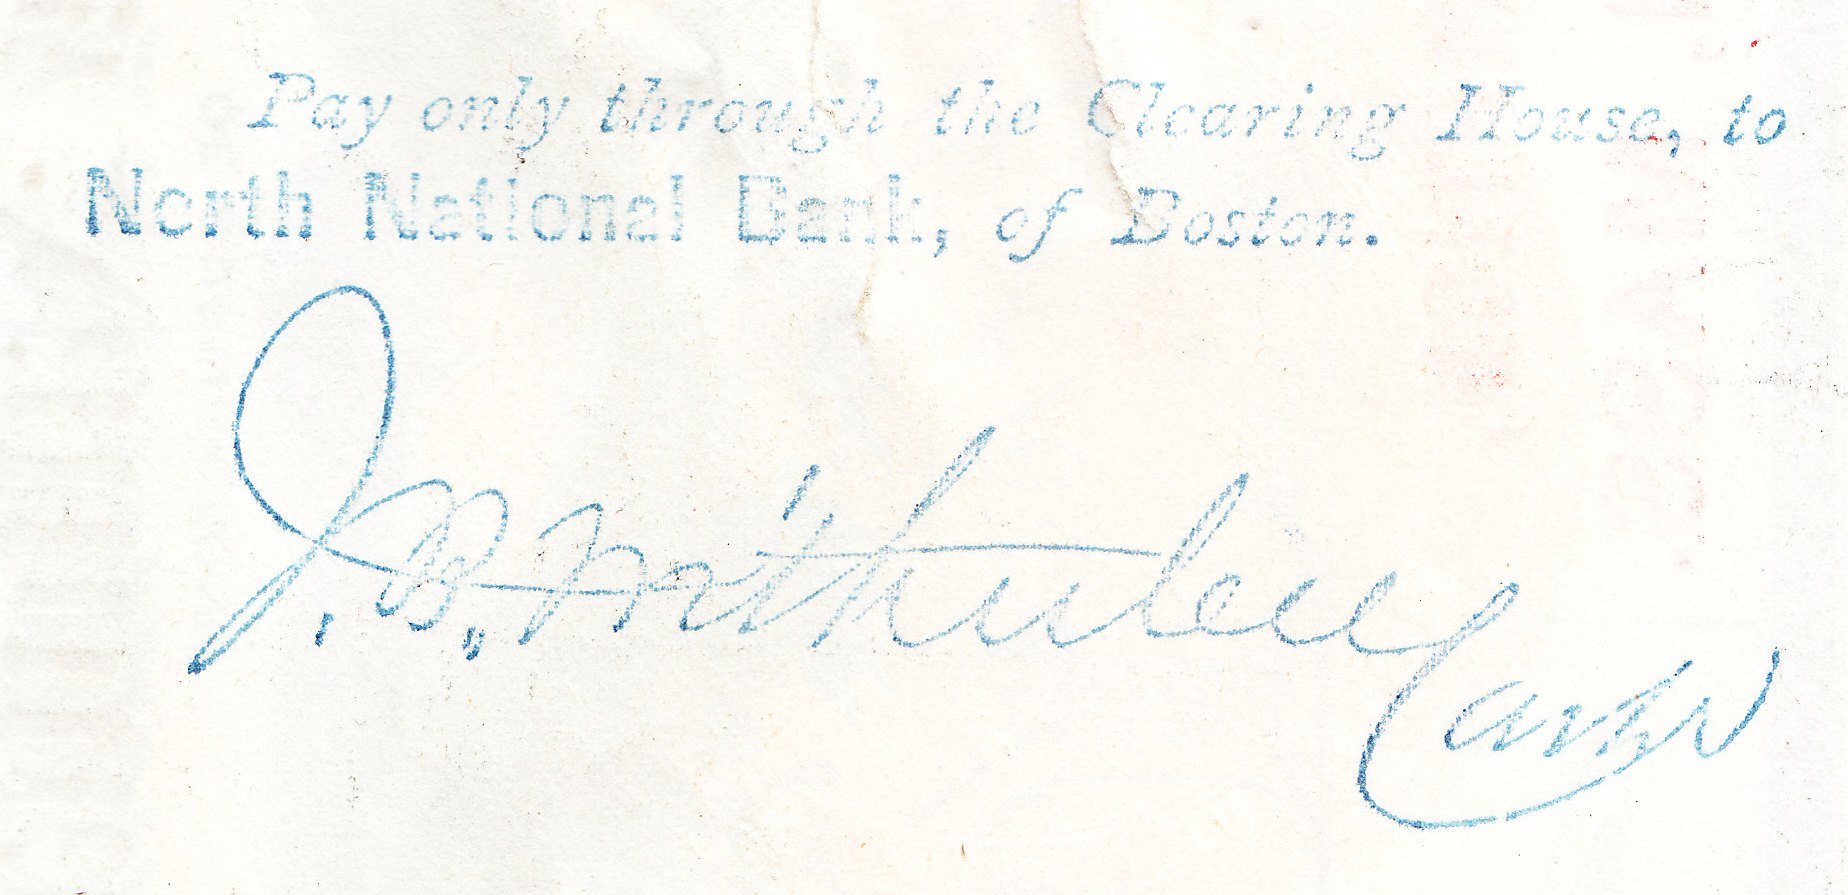 Pay only through the Clearing House, to
North National Bank, of Boston.
J. B. Witherbee
Cash'r